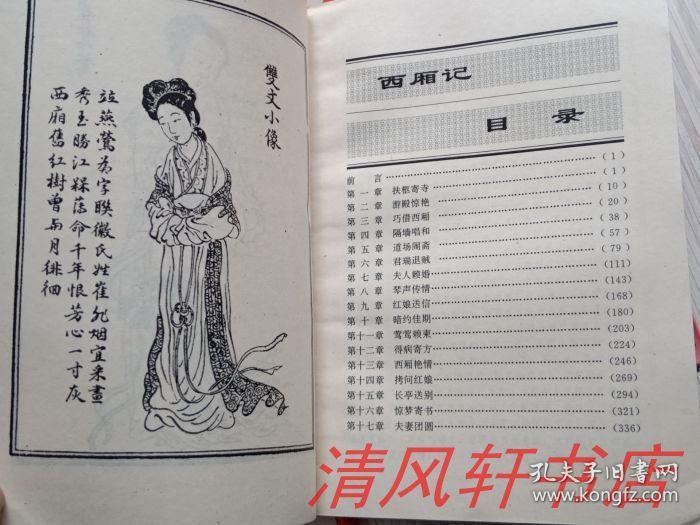 雙文小像
竝燕鶯為字聯徽氏姓崔非烟宜采畫
秀玉勝江槑薄命千年恨芳心一寸灰
西廂舊紅樹曾与月徘徊
西厢记
目 录
前 言……(1)
第一章 扶柩寄寺……(1)
第二章 游殿惊艳……(10)
第三章 巧借西厢……(20)
第四章 隔墙唱和……(38)
第五章 道场闹斋……(57)
第六章 君瑞退贼……(79)
第七章 夫人赖婚……(111)
第八章 琴声传情……(143)
第九章 红娘送信……(168)
第十章 暗约佳期……(180)
第十一章 莺莺赖柬……(203)
第十二章 得病寄方……(224)
第十三章 西厢艳情……(246)
第十四章 拷问红娘……(269)
第十五章 长亭送别……(294)
第十六章 惊梦寄书……(321)
第十七章 夫妻团圆……(336)
清风轩书店
孔夫子旧书网
www.kongfz.com